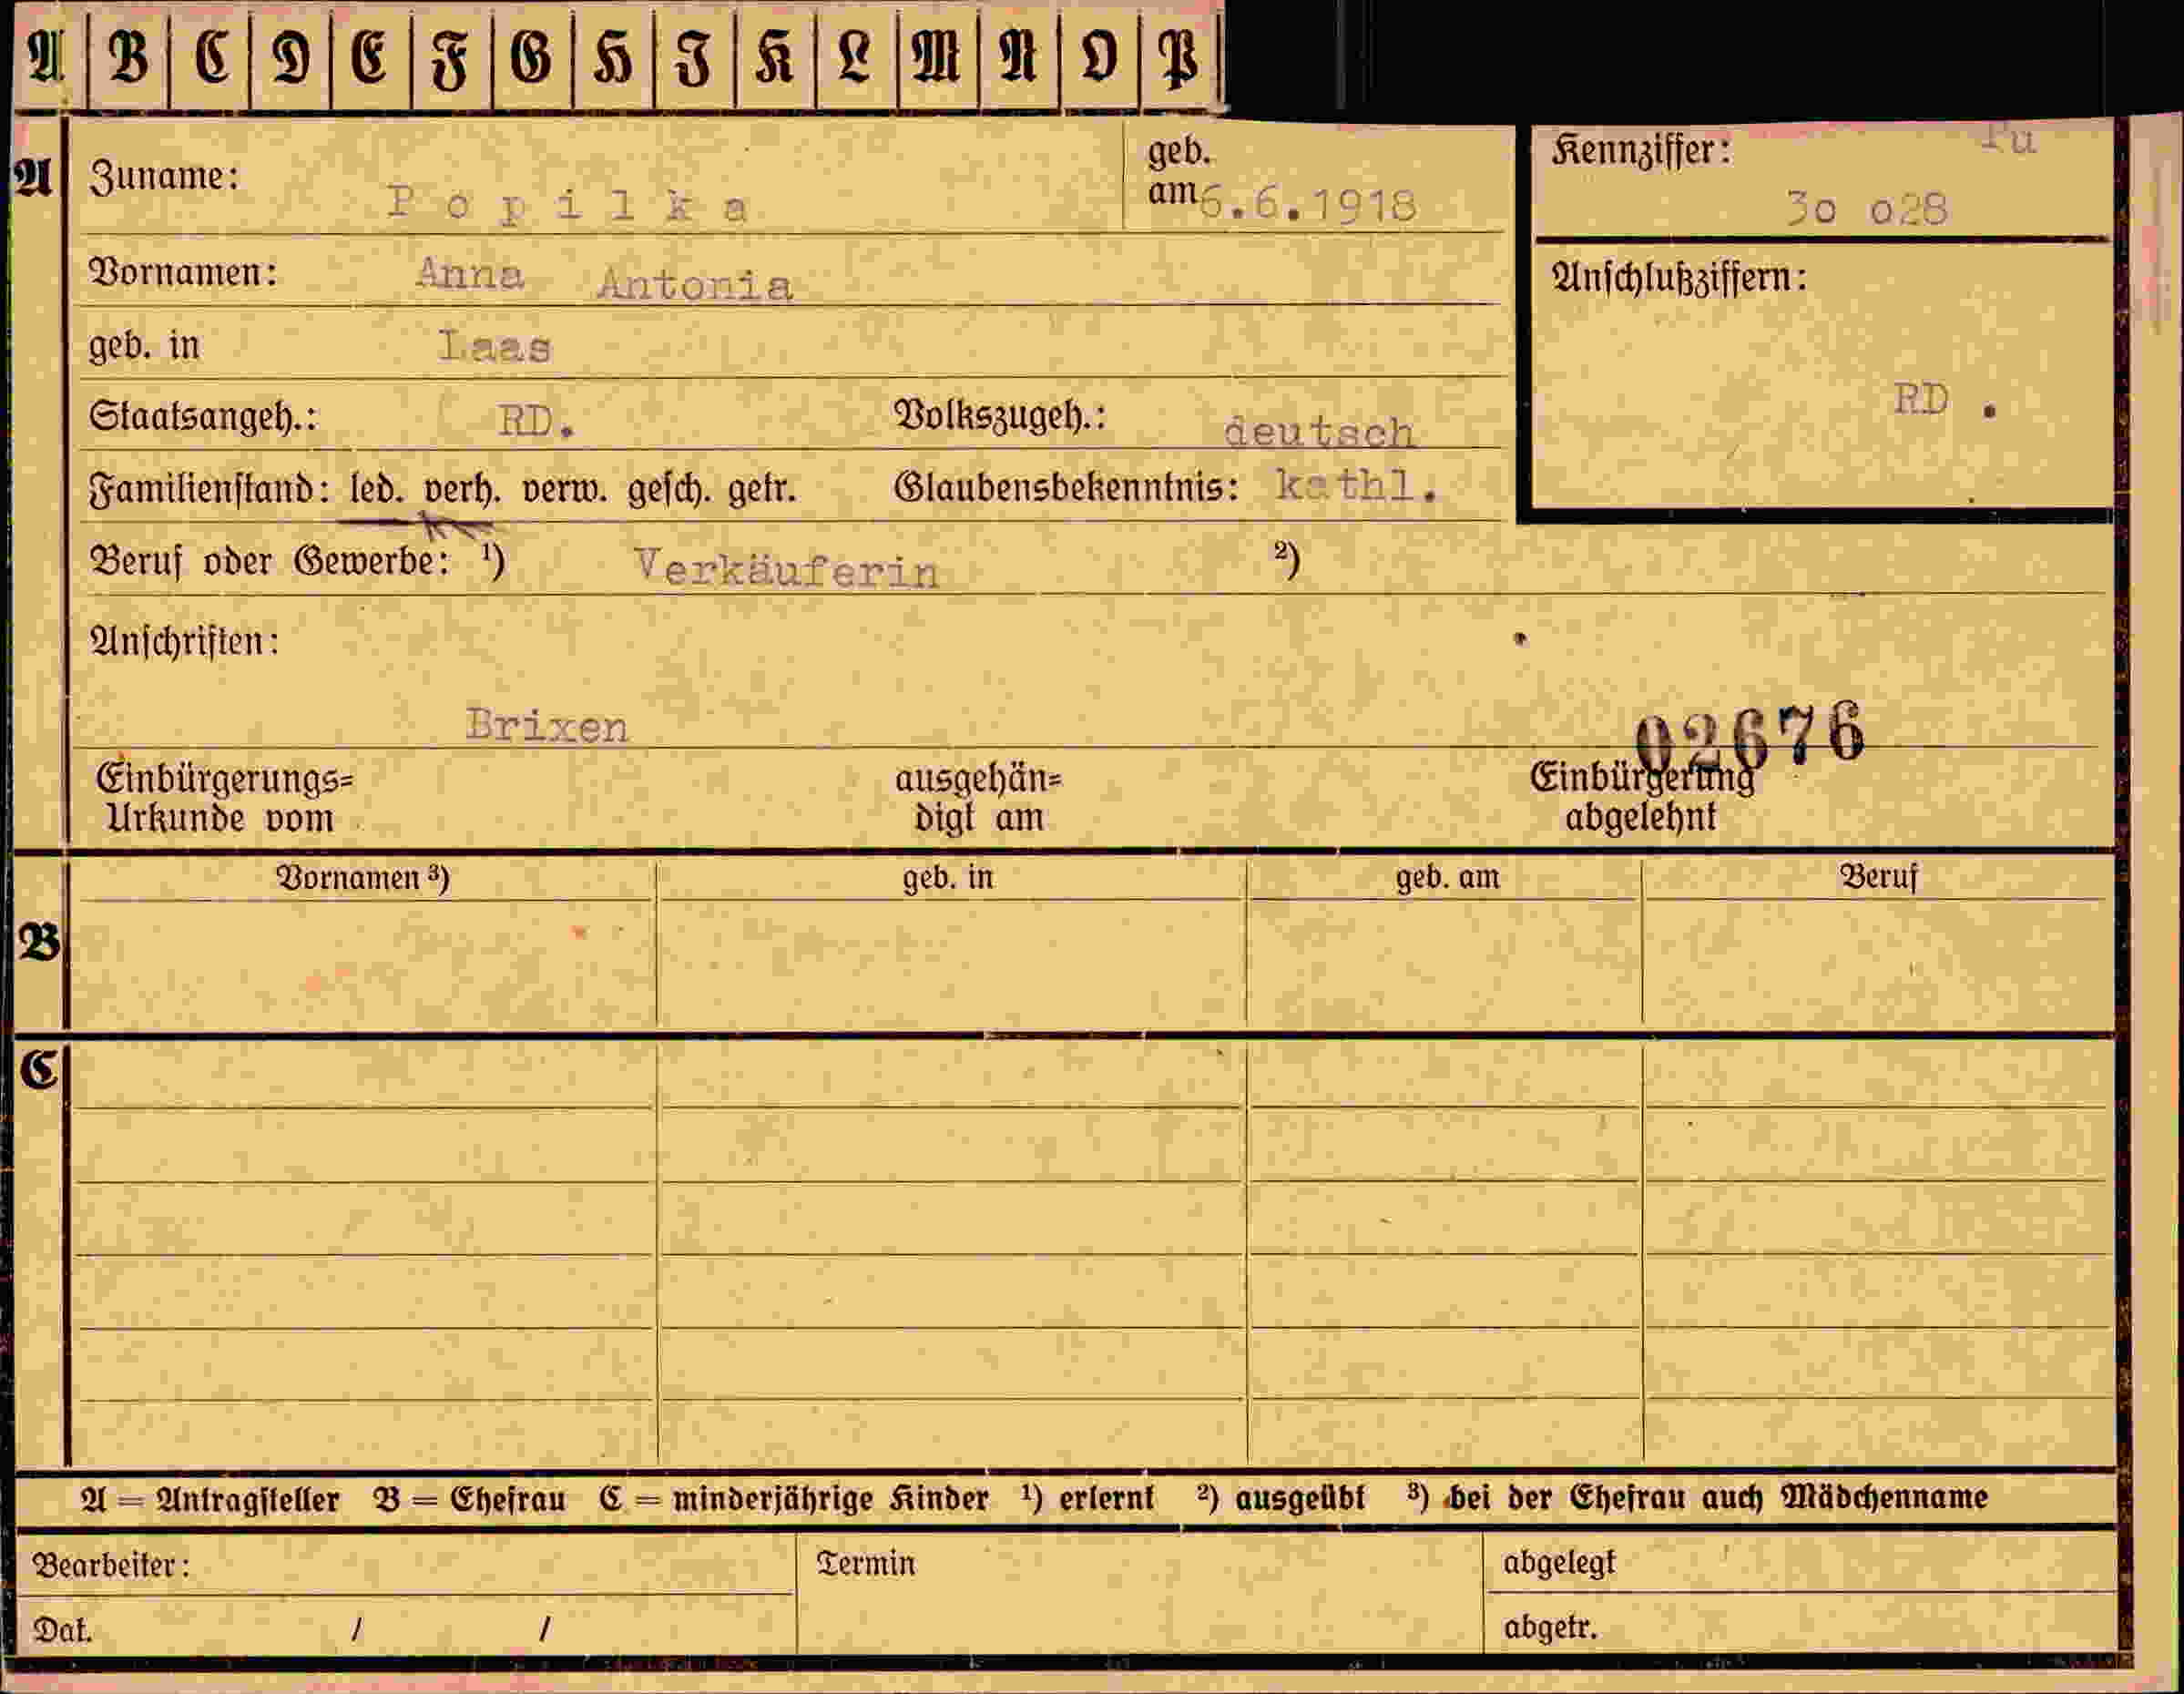 A B C D E F G H I K L M N O P
A Zuname: Popilka geb. am 6.6.1918
Kennziffer: 30 028
Vornamen: Anna Antonia
Anschlußziffern: RD .
geb. in Laas
Staatsangeh.: RD. Volkszugeh.: deutsch
Familienstand: led. verh. verw. gesch. getr. Glaubensbekenntnis: kathl.
Beruf oder Gewerbe: ¹) Verkäuferin ²)
Anschriften:
Brixen
02676
Einbürgerungs= Urkunde vom
ausgehän= digt am
Einbürgerung abgelehnt
Vornamen ³) geb. in geb. am Beruf
B
C
A = Antragsteller B = Ehefrau C = minderjährige Kinder ¹) erlernt ²) ausgeübt ³) bei der Ehefrau auch Mädchenname
Bearbeiter: Termin abgelegt
Dat. / / abgetr.